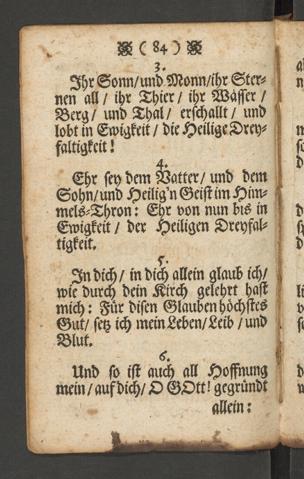 ( 84 )
3.
Ihr Sonn/ und Monn/ ihr Ster-
nen all / ihr Thier / ihr Wasser /
Berg / und Thal / erschallt / und
lobt in Ewigkeit / die Heilige Drey-
faltigkeit!
4.
Ehr sey dem Vatter / und dem
Sohn/ und Heilig'n Geist im Him-
mels-Thron: Ehr von nun bis in
Ewigkeit / der Heiligen Dreyfal-
tigkeit.
5.
In dich / in dich allein glaub ich/
wie durch dein Kirch gelehrt hast
mich: Für disen Glauben höchstes
Gut/ setz ich mein Leben/ Leib / und
Blut.
6.
Und so ist auch all Hoffnung
mein / auf dich / O GOtt! gegründt
allein: